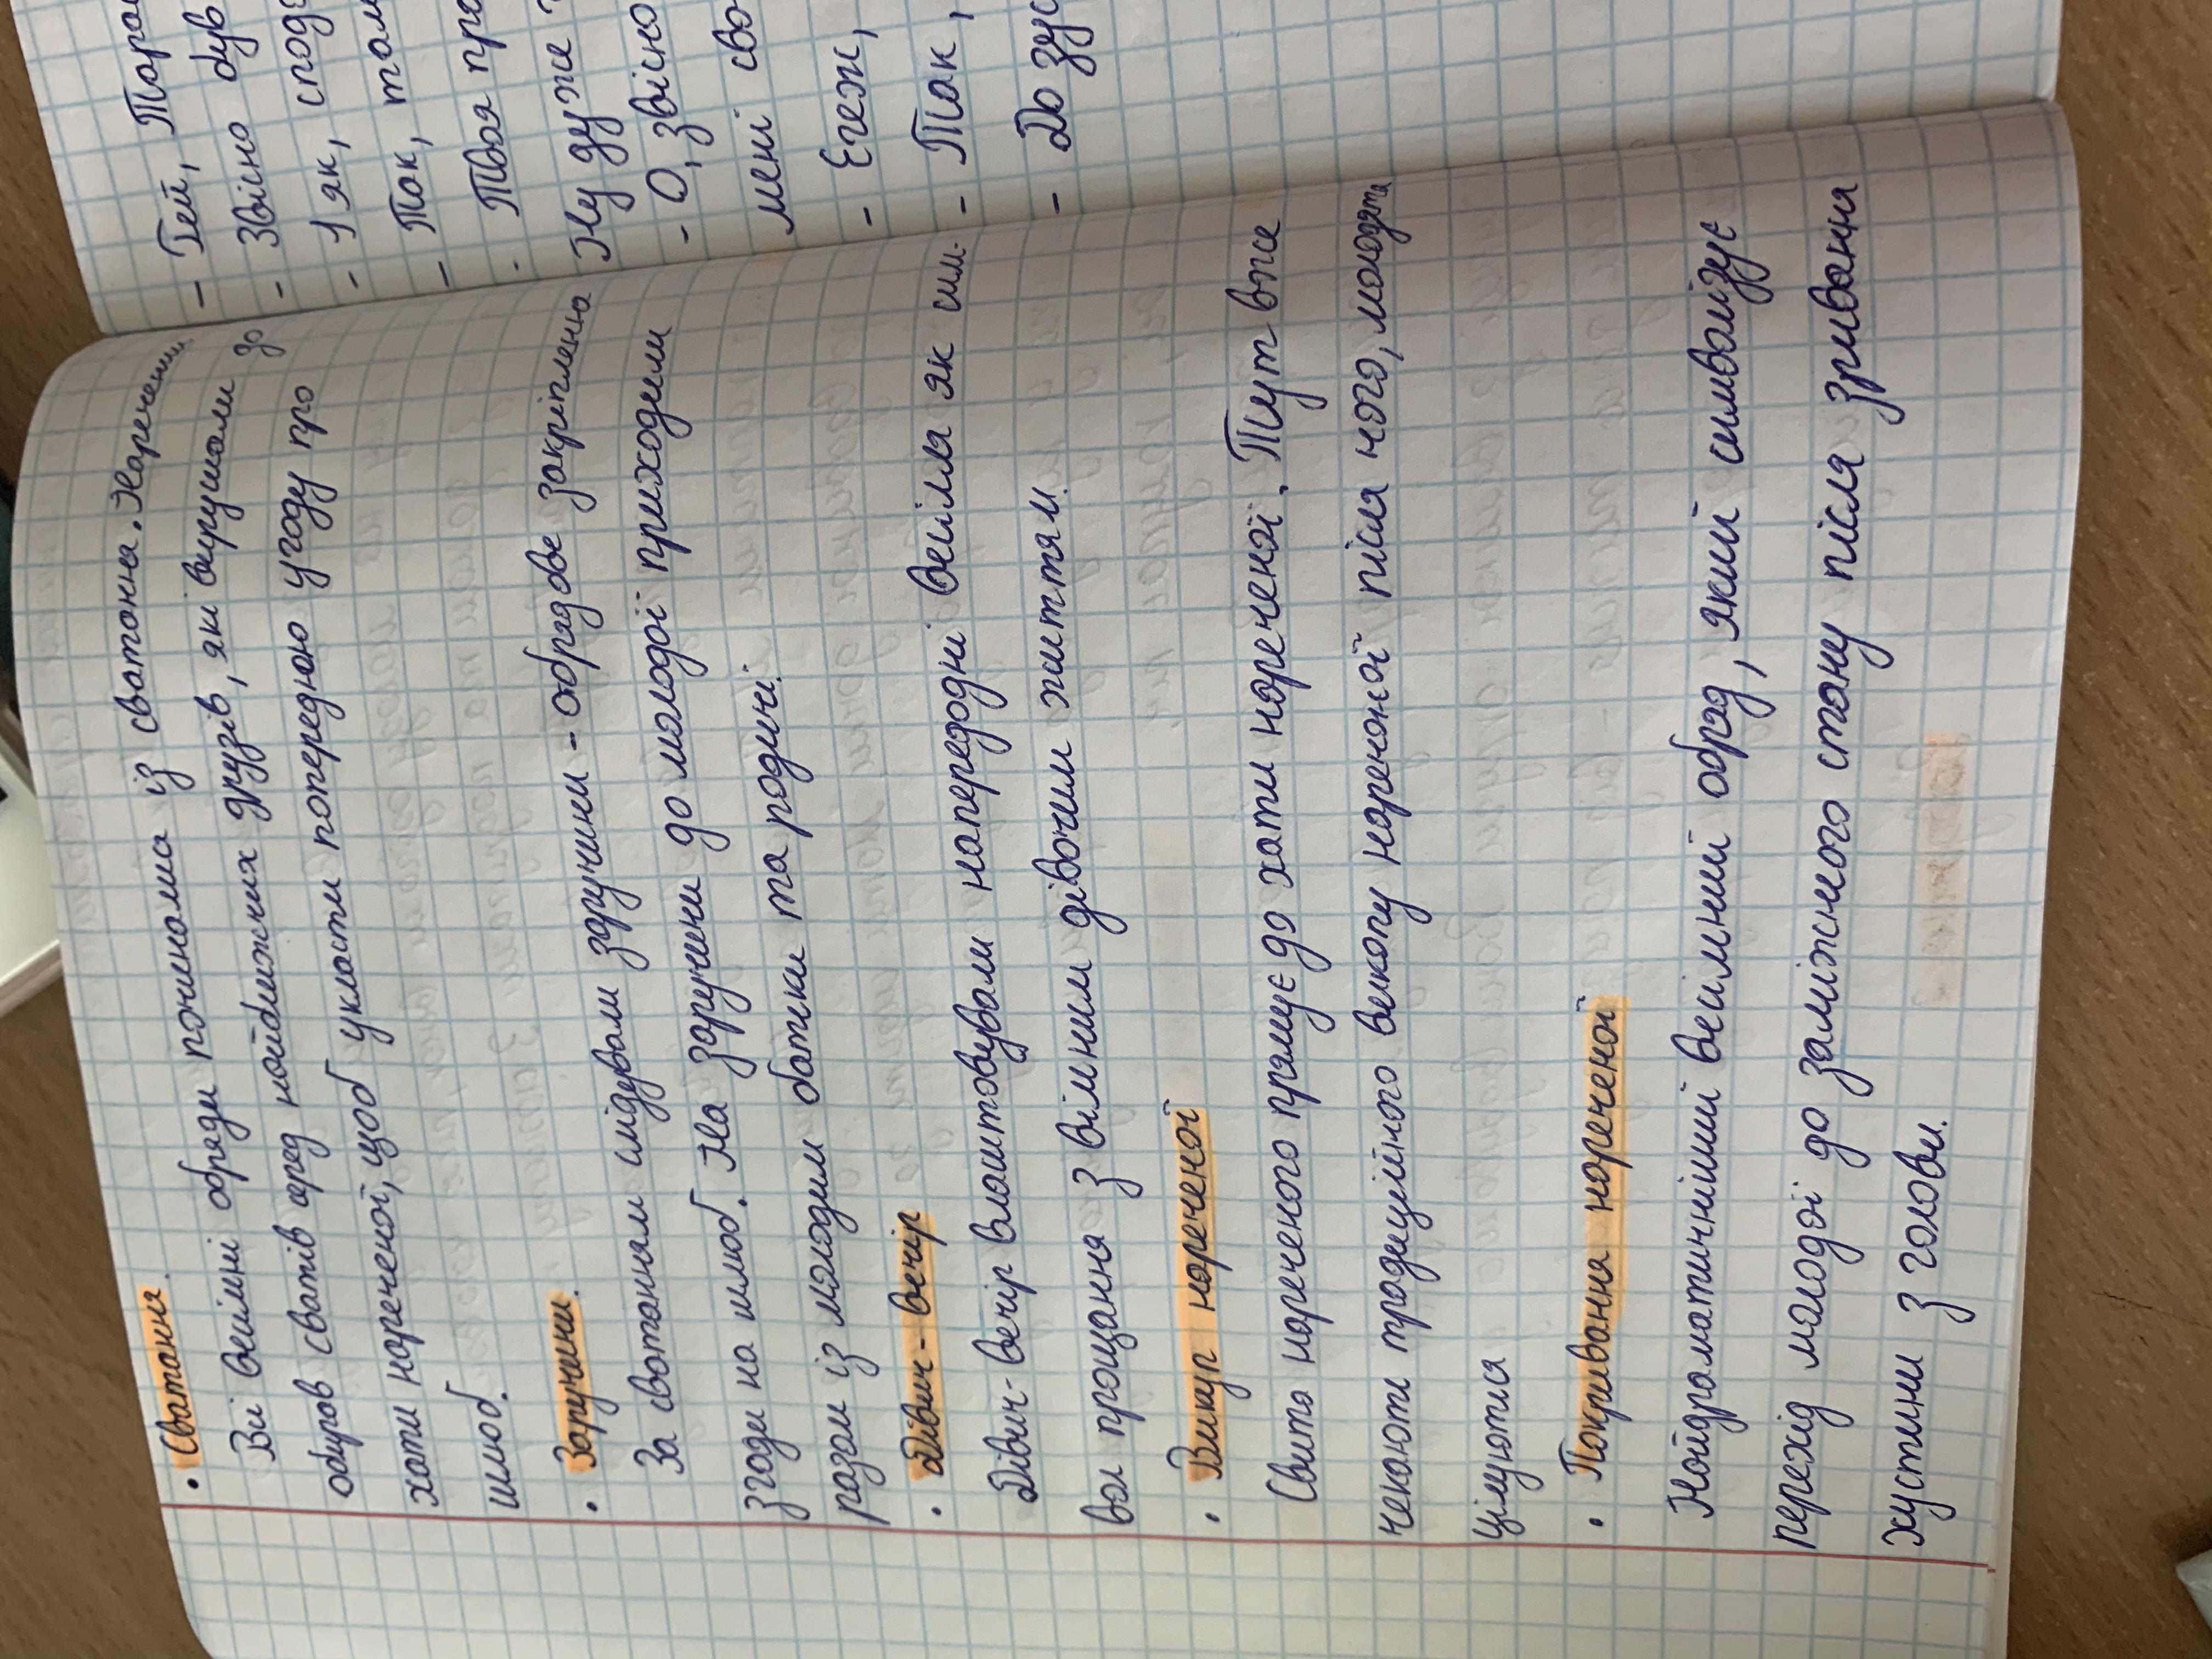 • Сватання.
Всі весільні обряди починалися із сватання. Наречений
обирав сватів серед найближчих друзів, які вирушали до
хати нареченої, щоб укласти попередню угоду про
шлюб.
• Заручини.
За сватанням слідували заручини - обрядове закріплення
згоди на шлюб. На заручини до молодої приходили
разом із молодим батьки та родичі.
• Дівич-вечір
Дівич-вечір влаштовували напередодні весілля як сим-
вол прощання з вільним дівочим життям.
• Викуп нареченої
Свита нареченого прямує до хати нареченої. Тут вже
чекають традиційного викупу нареченої після чого, молодята
цілуються
• Покривання нареченої
Найдраматичніший весільний обряд, який символізує
перехід молодої до заміжнього стану після зривання
хустини з голови.
- Гей, Тарас
- Звісно був
- І як, спод
- Так, там
- Твоя пра
Ну дуже
- О, звісно
мені сво
- Егеж,
- Так,
- До зус